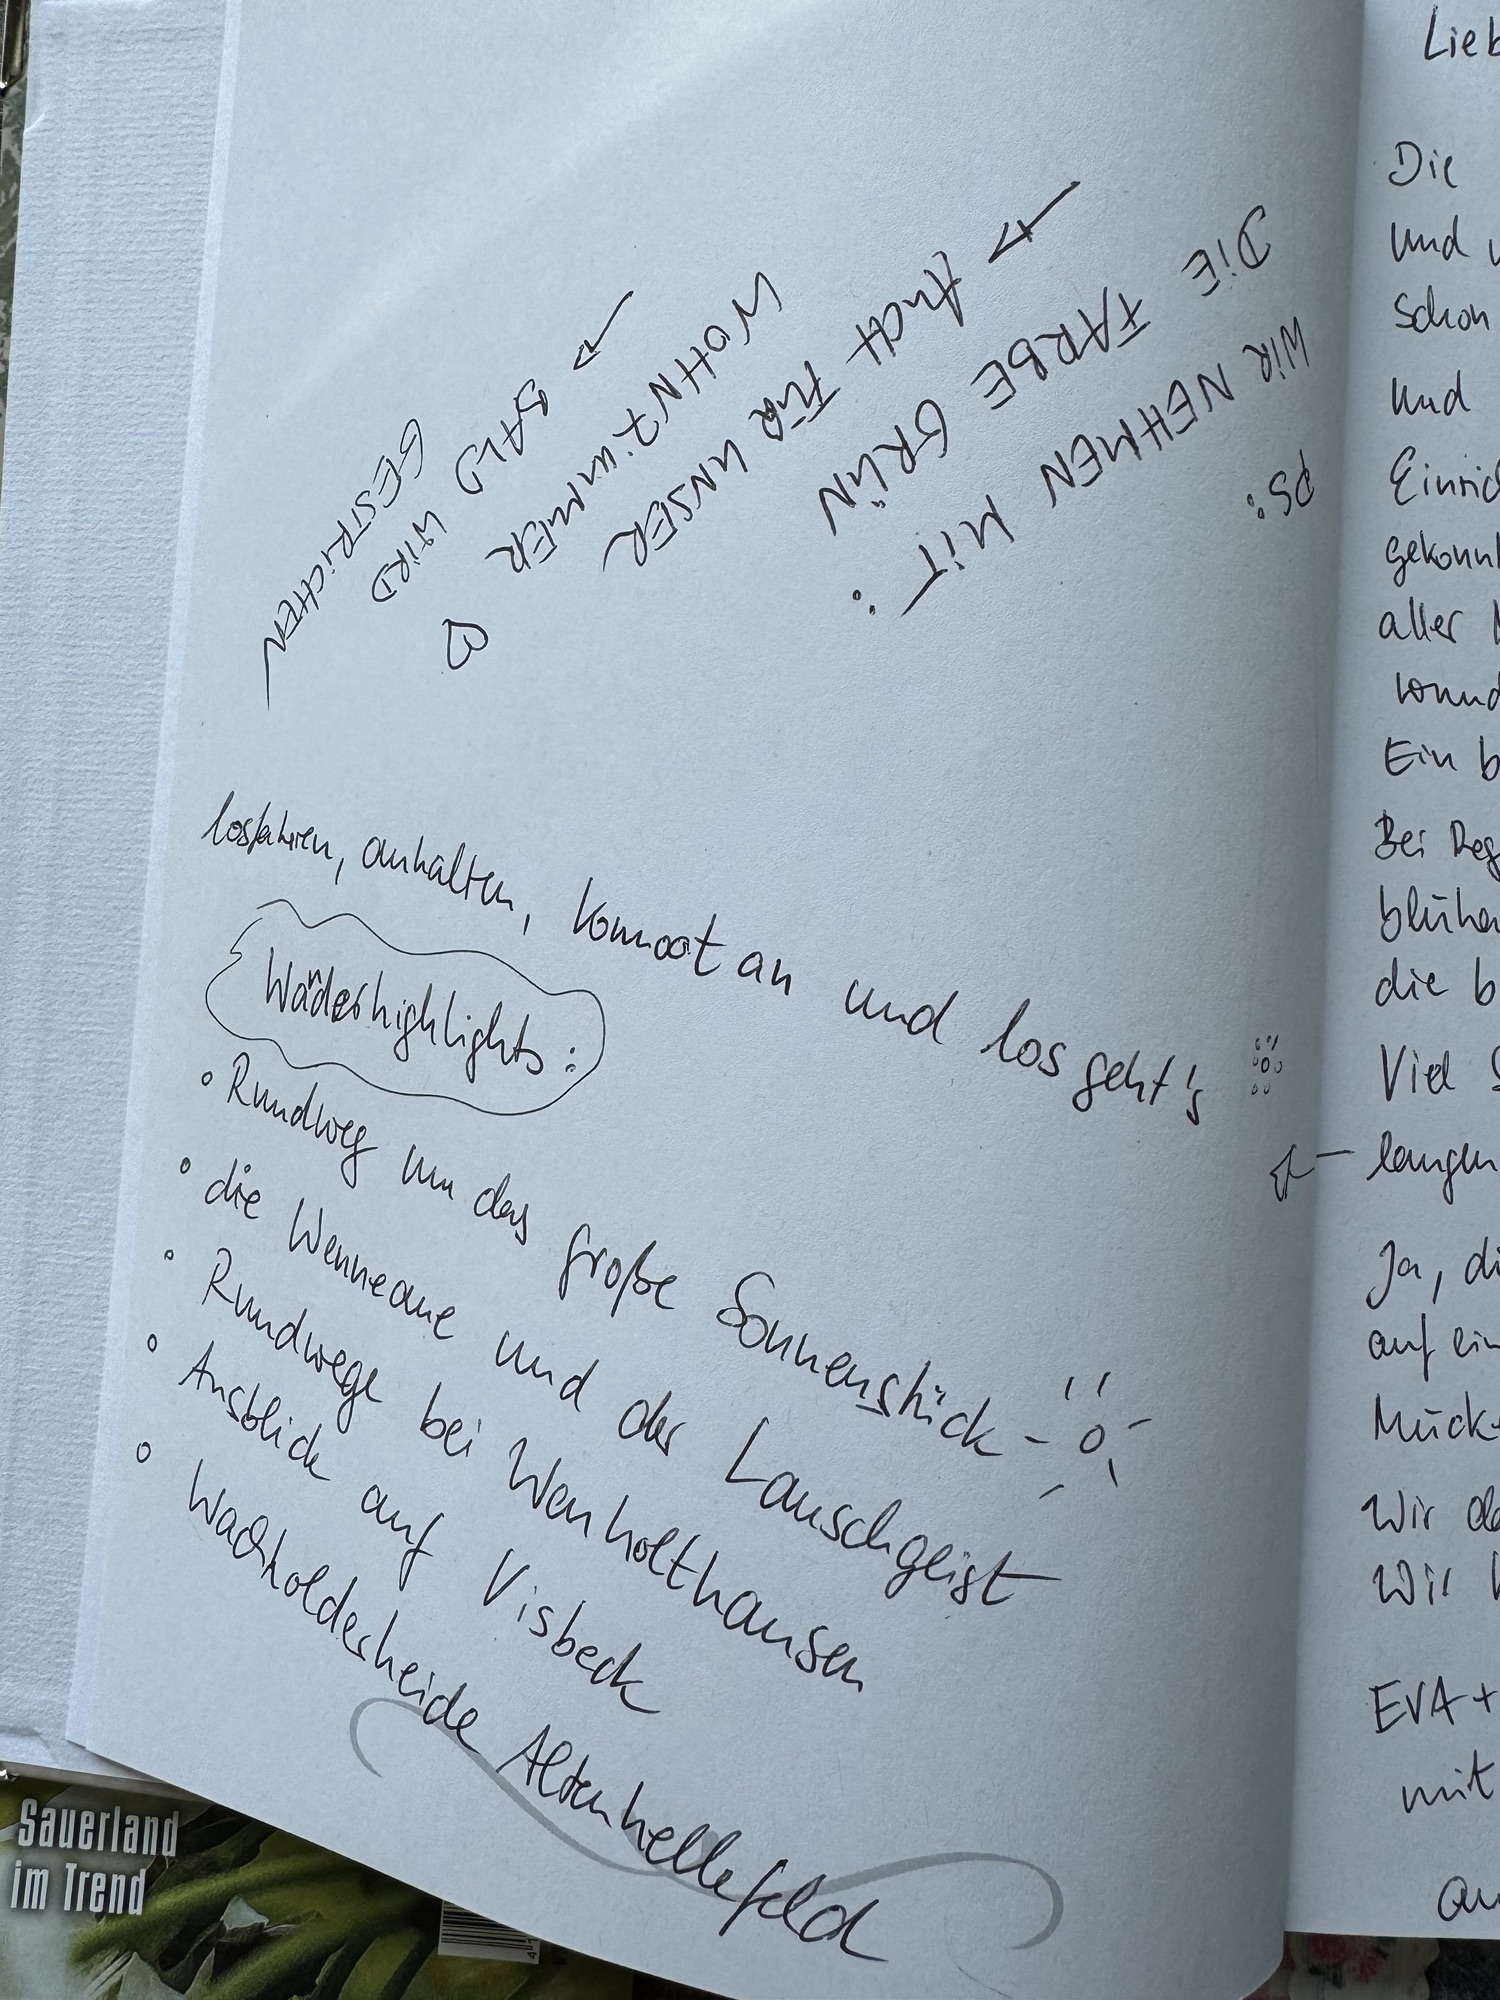 PS:
WIR NEHMEN MIT:
DIE FARBE GRÜN
→ AUCH FÜR UNSER
WOHNZIMMER
→ BALD WIRD ♡
GESTRICHEN
losfahren, anhalten, komoot an und los geht's
Wanderhighlights:
° Rundweg um das große Sonnenstück -
° die Wenneaue und der Lauschgeist
° Rundwege bei Wenholthausen
° Ausblick auf Visbeck
° Wacholderheide Altenhellefeld
Lieb
Die
und
schon
und
Einric
gekonnt
aller
Ein b
Bei Reg
blühe
die b
Viel
← langen
Ja, di
auf ein
Mück
Wir da
Wir
EVA +
mit
Sauerland
im Trend